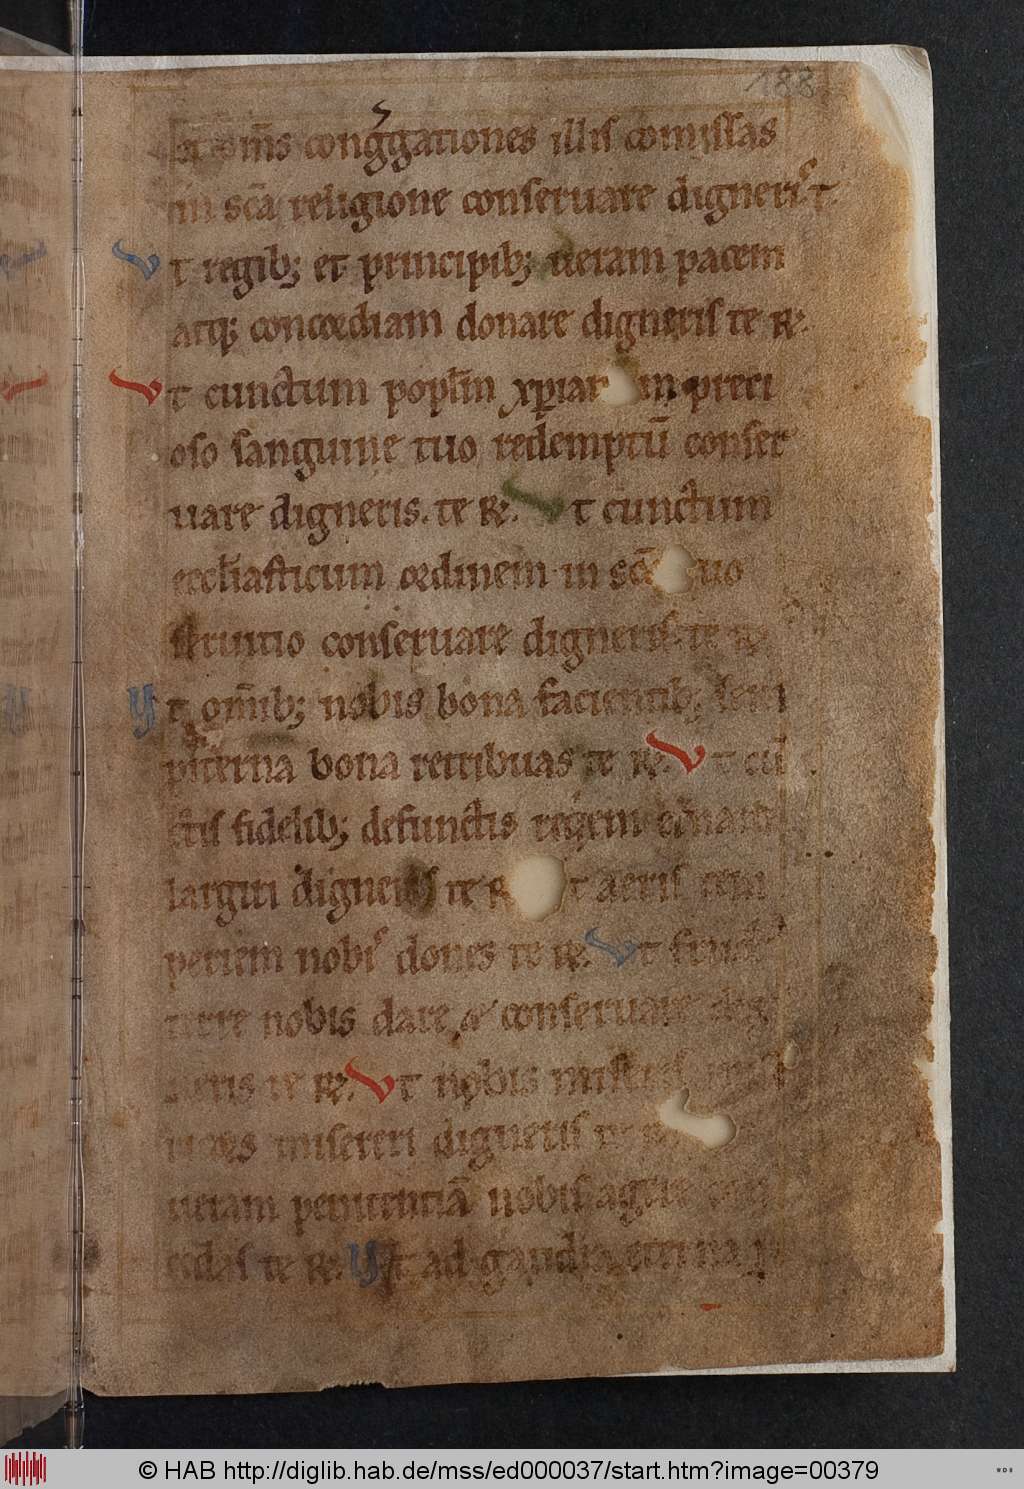 188
et om̄s cong͛gationes illis comissas
in sc̄a religione conseruare digneriˀs t͛
Vt regib; et principib; ueram pacem
atq; concordiam donare digneris te R.
Vt cunctum popl̄m xp̄iar in preci
oso sanguine tuo redemptū conser
uare digneris. te R. Vt cunctum
eccl̄iasticum ordinem in sc̄o uo
seruitio conseruare digneris. te R
Vt om̄ib; nobis bona facientib; sem
piterna bona retribuas te R. Vt cū
ctis fidelib; defunctis reqem et̄nam
largiri digneris te R t aeris tem
periem nobis dones te R. Vt fruct
terre nobis dare & conseruare dig
neris te R. Vt nobis miseris
misereri digneris te R
ueram penitentiā nobis agere con
cedas te R. Vt ad gaudia eterna p
© HAB http://diglib.hab.de/mss/ed000037/start.htm?image=00379